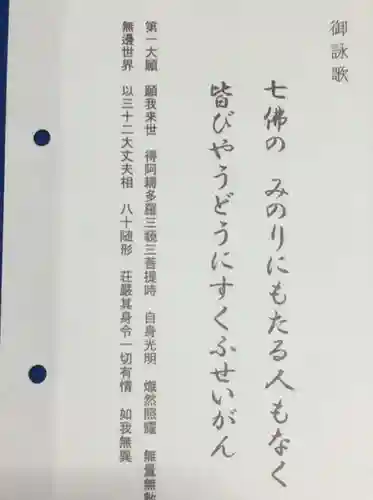 御詠歌
七佛の みのりにもたる人もなく
皆びやうどうにすくふせいがん
第一大願 願我来世 得阿耨多羅三藐三菩提時 自身光明 熾然照曜 無量無數
無邊世界 以三十二大丈夫相 八十随形 荘嚴其身令一切有情 如我無異